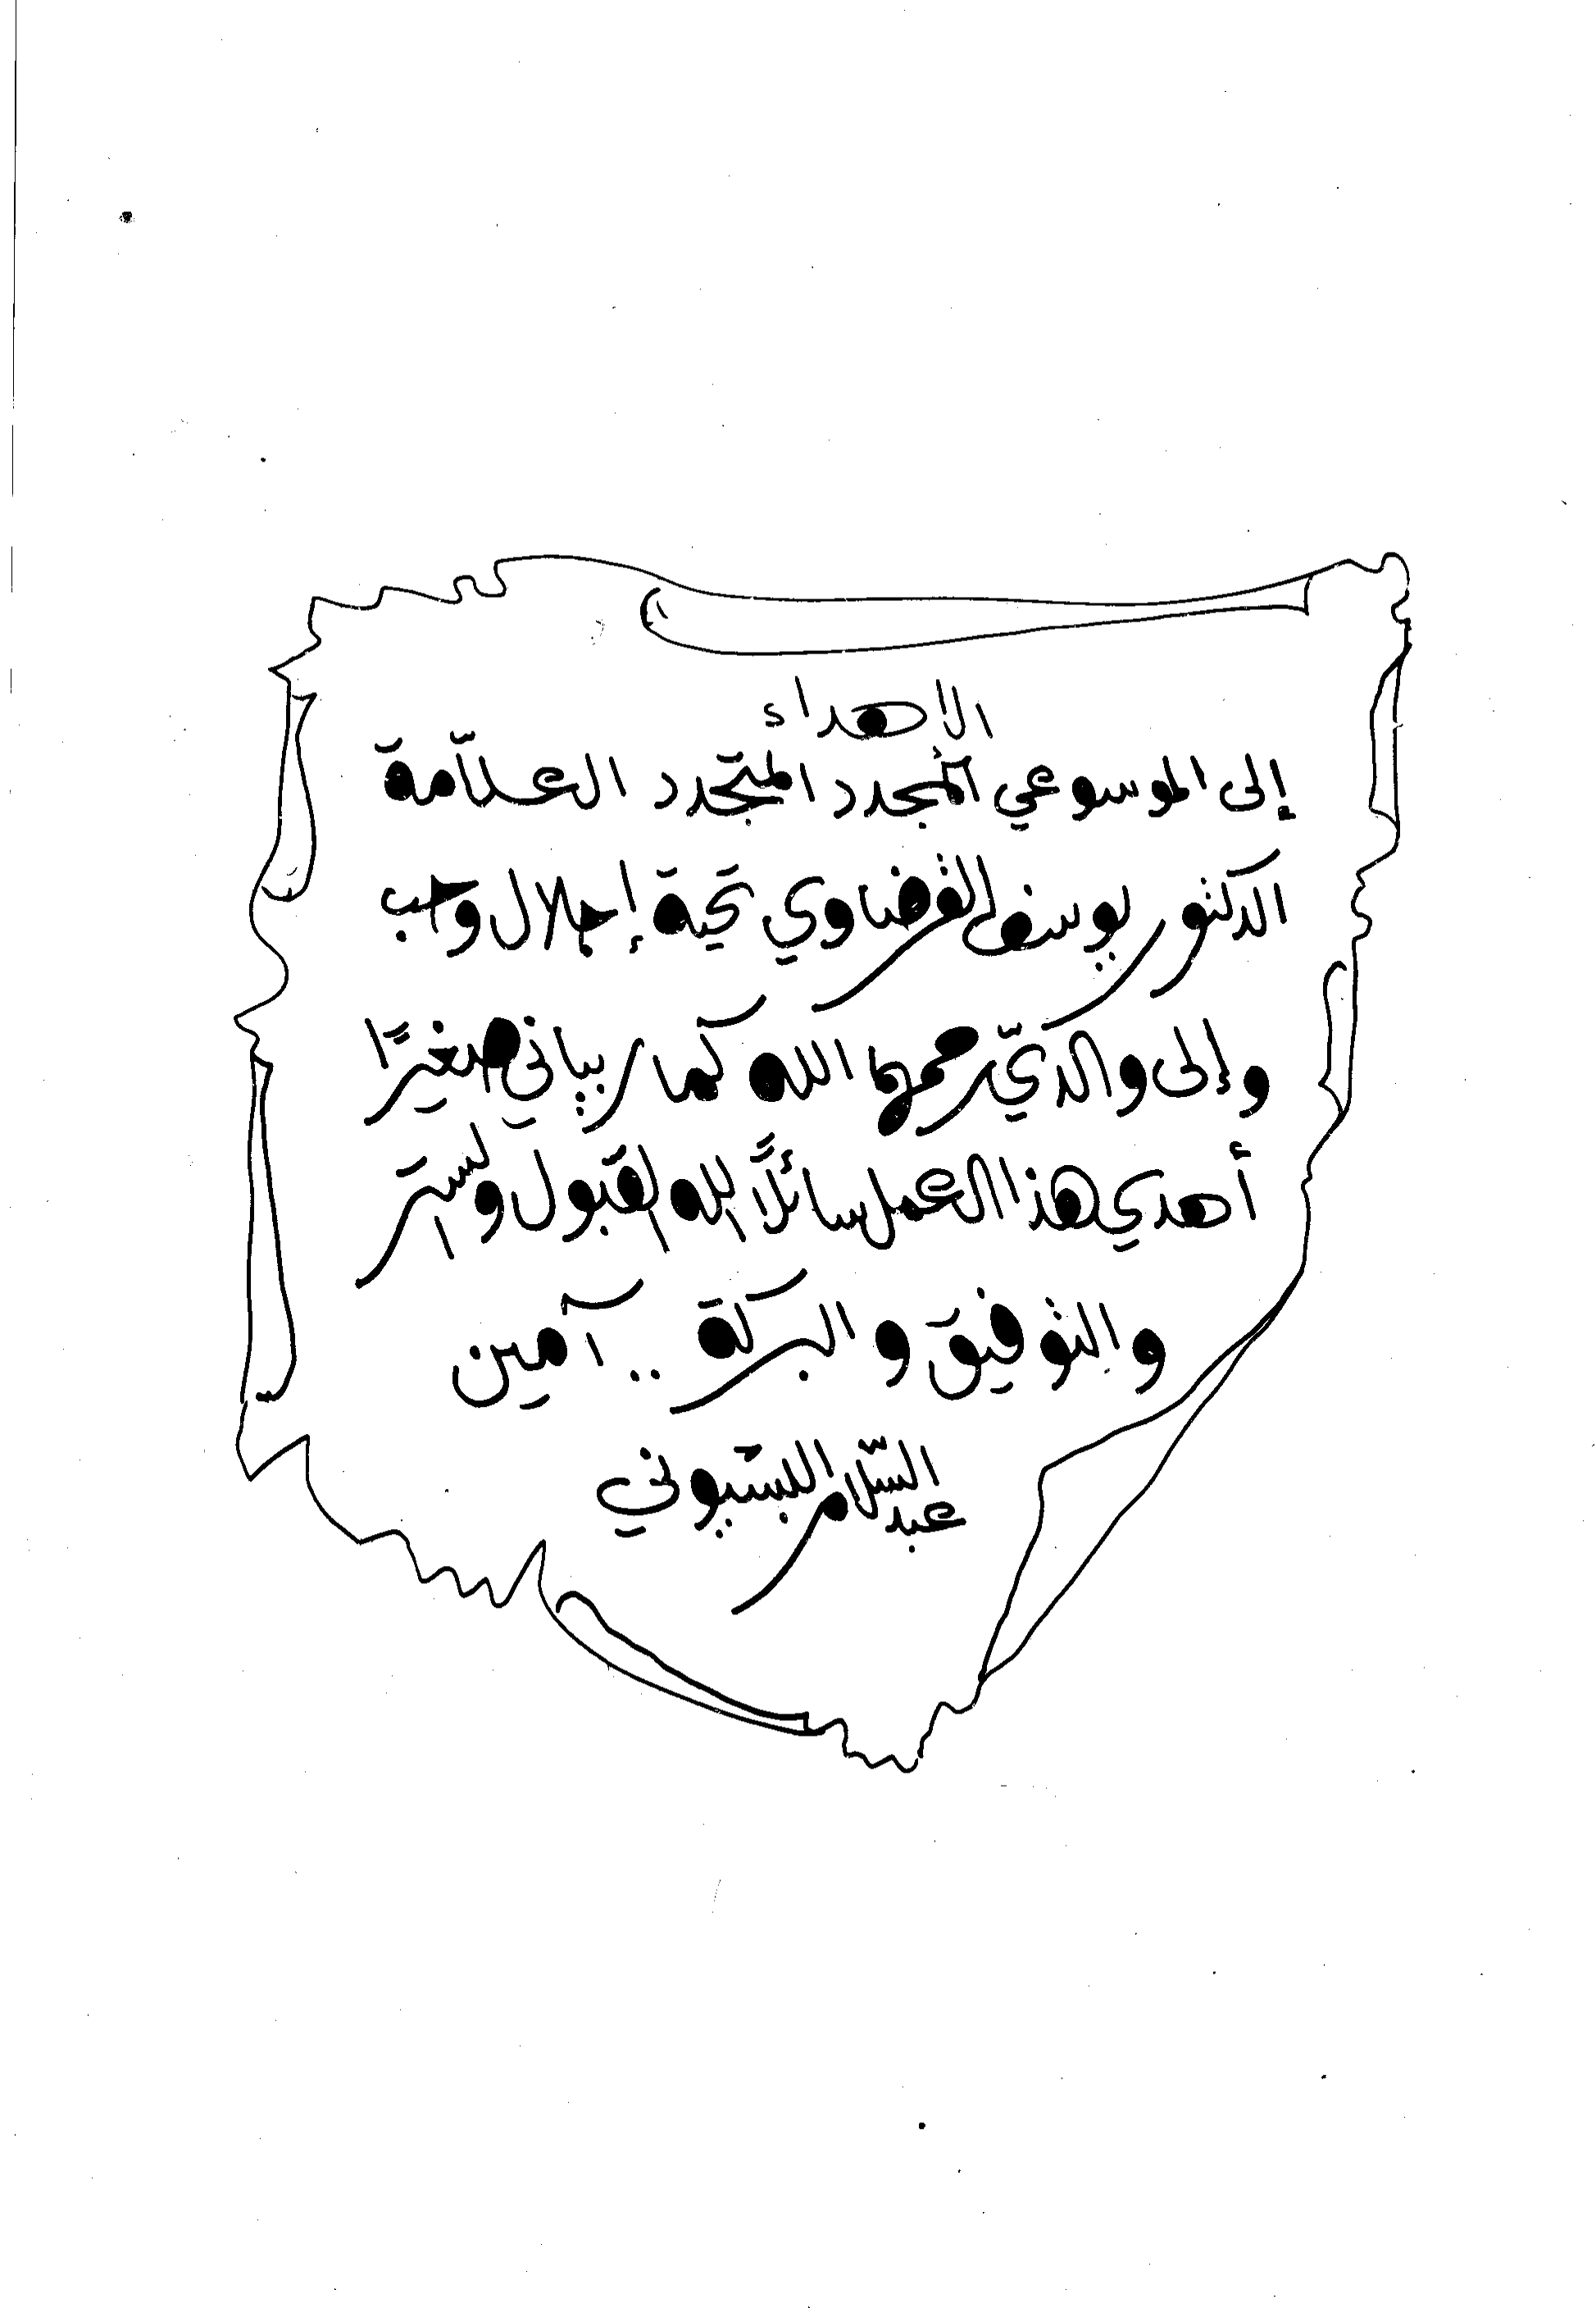 الاهداء
إلى الموسوعي المجدد المتجدد العلاّمة
الدكتور يوسف القرضاوي تحية إجلال وحب
وإلى والديّ رحمهما الله كما ربياني صغيرًا
أهدي هذا العمل سائلاً الله القبول والستر
والتوفيق والبركة .. آمين
عبد السّلام البسيوني